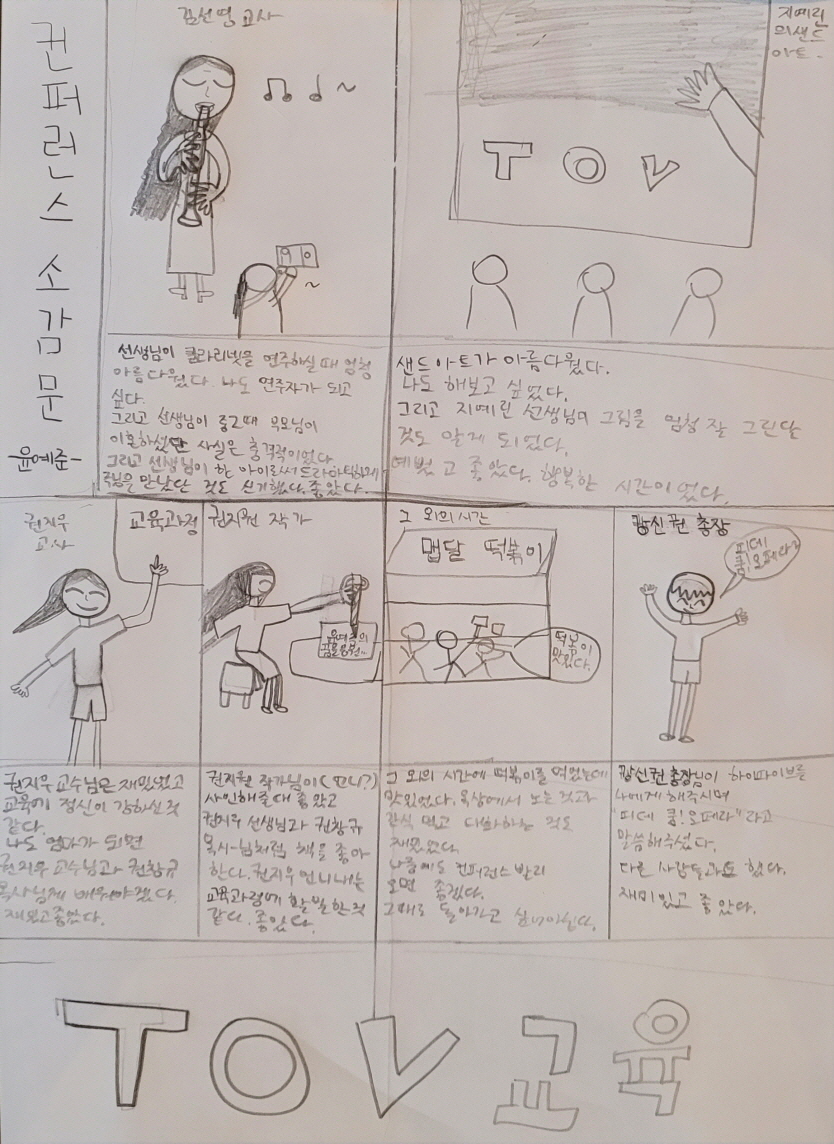 컨퍼런스 소감문
-윤예준-
김선영 교사
선생님이 클라리넷을 연주하실 때 엄청
아름다웠다. 나도 연주자가 되고
싶다.
그리고 선생님이 중2때 부모님이
이혼하셨단 사실은 충격적이었다
그리고 선생님이 한 아이로써 드라마틱하게
주님을 만났단 것도 신기했다. 좋았다.
지예린
의 샌드
아트.
TOV
샌드아트가 아름다웠다.
나도 해보고 싶었다.
그리고 지예린 선생님의 그림을 엄청 잘 그린단
것도 알게 되었다.
예뻤고 좋았다. 행복한 시간이었다.
권지우
교사
교육과정
권지우 교수님은 재밌었고
교육의 정신이 강하신 것
같다.
나도 엄마가 되면
권지우 교수님과 권창규
목사님께 배워야겠다.
재밌고 좋았다.
권지원 작가
권지원 작가님이 (언니?)
사인해줄 때 좋았고
권지우 선생님과 권창규
목사님처럼 책을 좋아
한다. 권지우 언니네는
교육과정에 활발한 것
같다. 좋았다.
그 외의 시간
맵달 떡볶이
떡볶이
맛있다.
그 외의 시간에 떡볶이를 먹었는데
맛있었다. 옥상에서 노는 것과
간식 먹고 대화하는 것도
재밌었다.
다음에도 컨퍼런스 빨리
오면 좋겠다.
그때로 돌아가고
강신권 총장
피데
쿰! 오페라
강신권 총장님이 하이파이브를
나에게 해주시며
"피데 쿰! 오페라"라고
말씀해주셨다.
다른 사람들과도 했다.
재미있고 좋았다.
TOV 교육